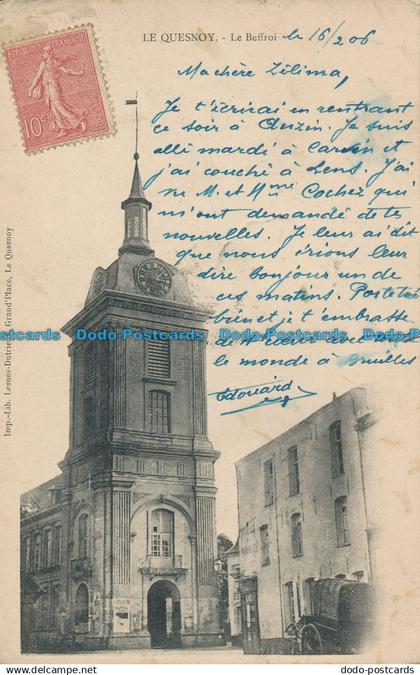 LE QUESNOY. - Le Beffroi le 16/2 06
Ma chère Zélima,
Je t'écrirai en rentrant
ce soir à Anzin Je suis
allé mardi à Carvin et
j'ai couché à Lens. J'ai
vu M. et Mme Cochez qui
m'ont demandé de tes
nouvelles. Je leur ai dit
que nous irions leur
dire bonjour un de
ces matins. Porte toi
bien et je t'embrasse
le monde à
Edouard
10c
Imp.-Lib. Lesnes-Dutrie Grand'Place, Le Quesnoy
Dodo-Postcards Dodo-Postcards Dodo-Postcards Dodo-Postcards
dodo-postcards.com dodo-postcards.com